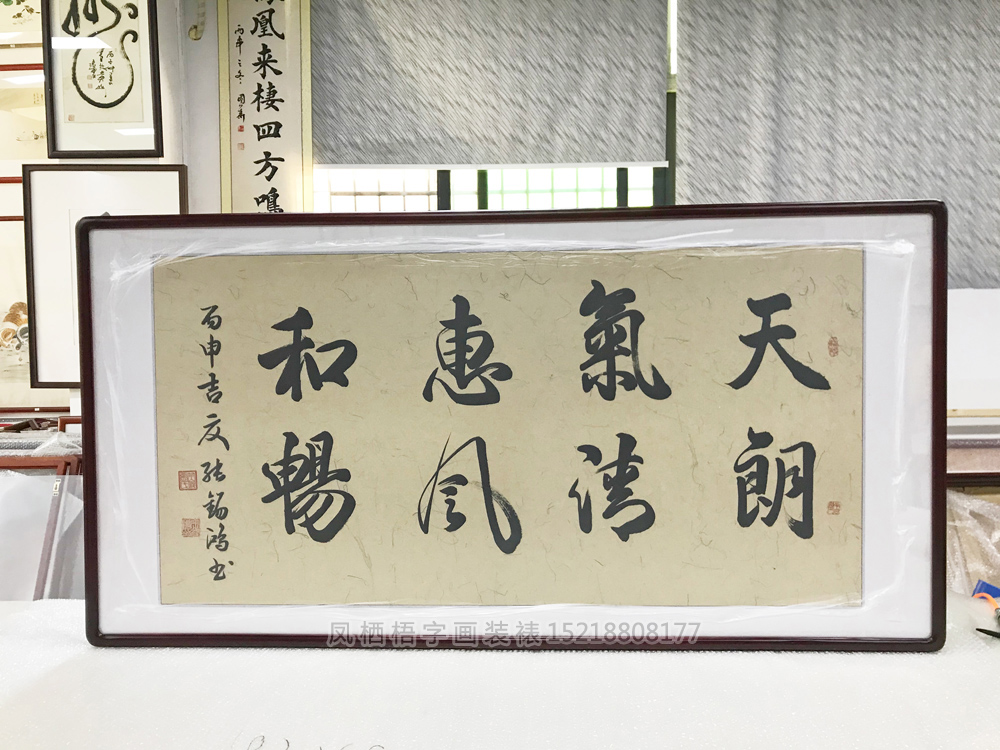 天朗
氣清
惠風
和暢
丙申吉夏張錫鴻书
凰来棲四方鳴
丙申之冬
凤栖梧字画装裱15218808177